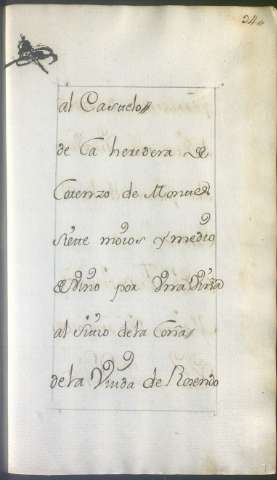 24
al Casuelo
de la heredera de
Lorenzo de Monve
siete moios y medio
de Vino por Vna Viña
al sitio de la Coria
de la Viuda de Rosendo